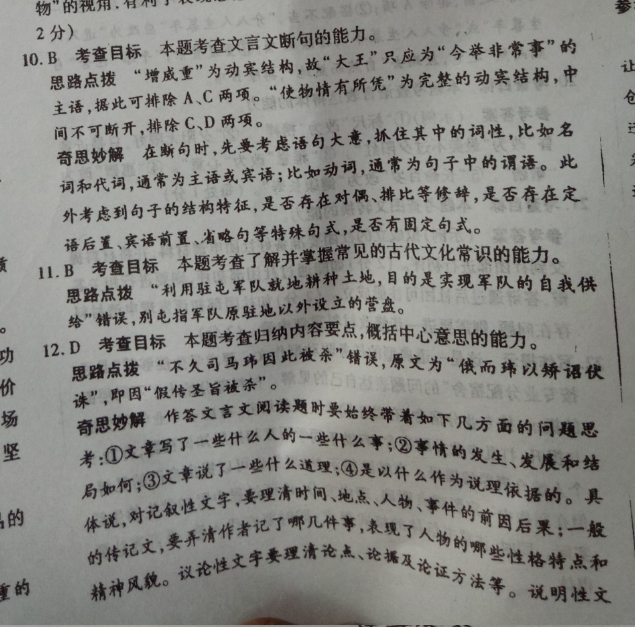 2分)
10. B 考查目标 本题考查文言文断句的能力。
思路点拨 “增威重”为动宾结构,故“大王”只应为“今举非常事”的
主语,据此可排除A、C两项。“使物情有所凭”为完整的动宾结构,中
间不可断开,排除C、D两项。
奇思妙解 在断句时,先要考虑语句大意,抓住其中的词性,比如名
词和代词,通常为主语或宾语;比如动词,通常为句子中的谓语。此
外考虑到句子的结构特征,是否存在对偶、排比等修辞,是否存在定
语后置、宾语前置、省略句等特殊句式,是否有固定句式。
11. B 考查目标 本题考查了解并掌握常见的古代文化常识的能力。
思路点拨 “利用驻屯军队就地耕种土地,目的是实现军队的自我供
给”错误,别屯指军队原驻地以外设立的营盘。
12. D 考查目标 本题考查归纳内容要点,概括中心意思的能力。
思路点拨 “不久司马玮因此被杀”错误,原文为“俄而玮以矫诏伏
诛”,即因“假传圣旨被杀”。
奇思妙解 作答文言文阅读题时要始终带着如下几方面的问题思
考:①文章写了一些什么人的一些什么事;②事情的发生、发展和结
局如何;③文章说了一些什么道理;④是以什么作为说理依据的。具
体说,对记叙性文字,要理清时间、地点、人物、事件的前因后果;一般
的传记文,要弄清作者记了哪几件事,表现了人物的哪些性格特点和
精神风貌。议论性文字要理清论点、论据及论证方法等。说明性文
功
价
场
坚
的
重的
让